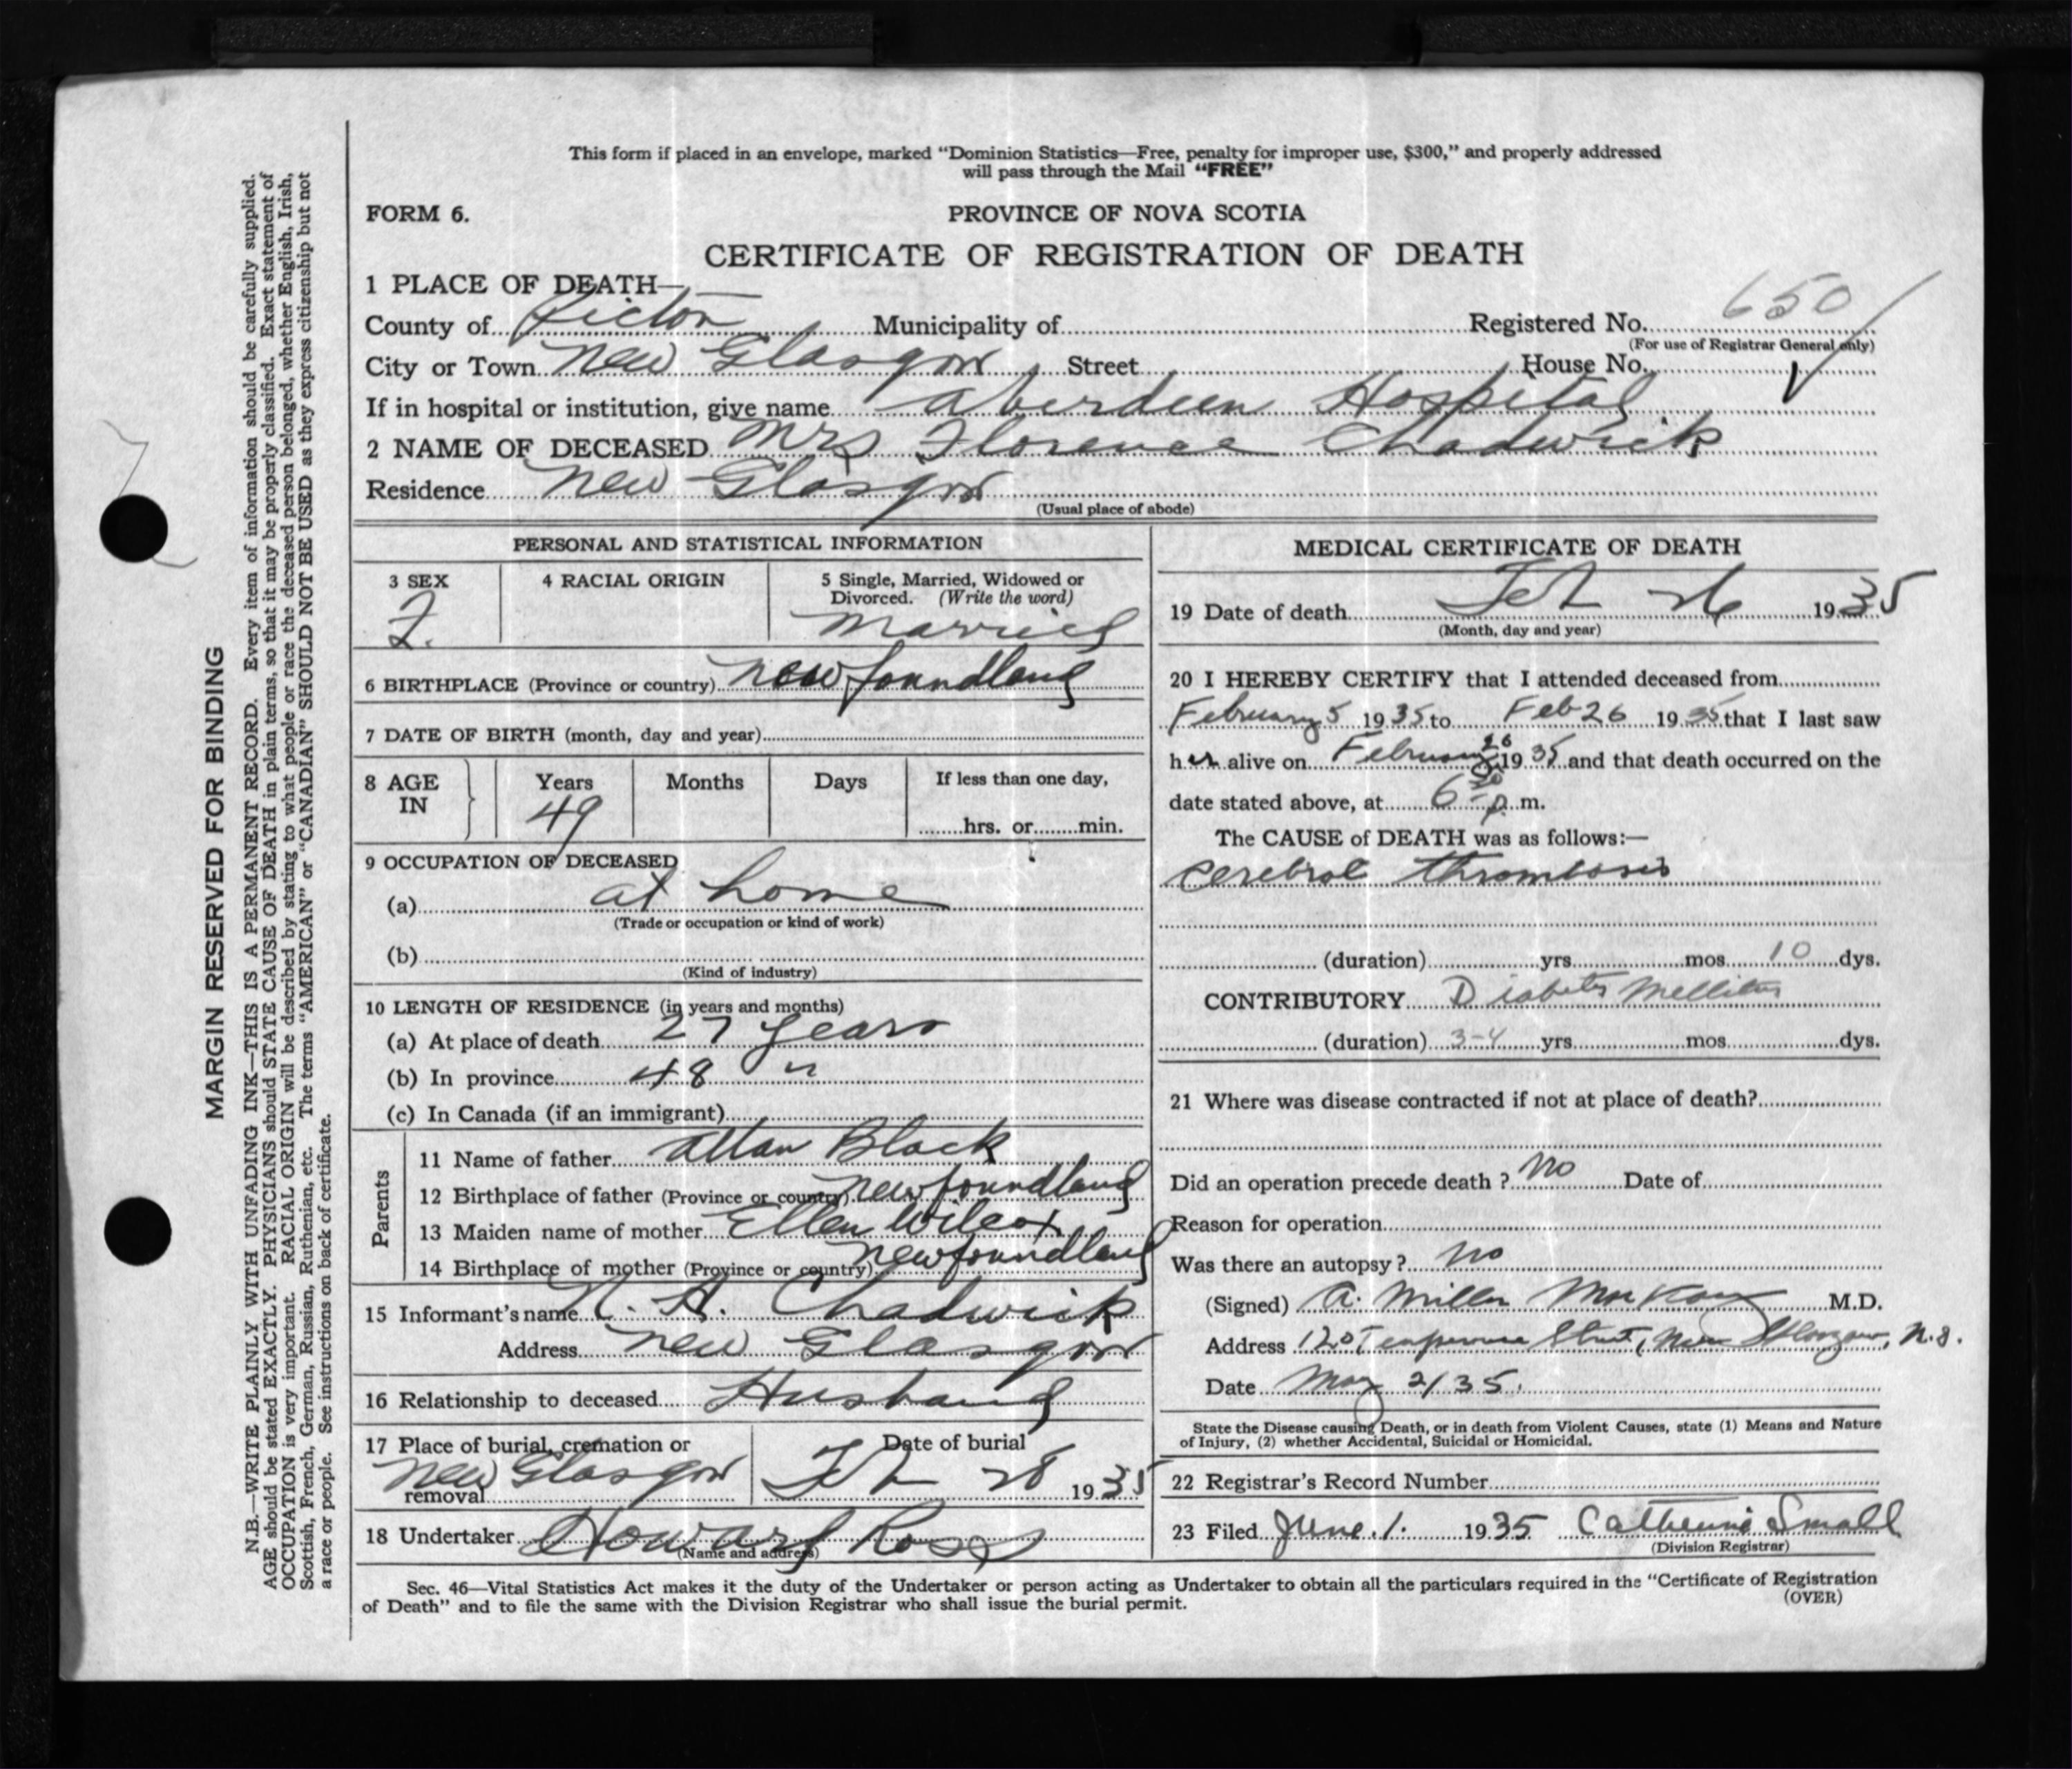 This form if placed in an envelope, marked “Dominion Statistics—Free, penalty for improper use, $300,” and properly addressed
will pass through the Mail “FREE”
FORM 6.
PROVINCE OF NOVA SCOTIA
CERTIFICATE OF REGISTRATION OF DEATH
1 PLACE OF DEATH—
County of Pictou Municipality of Registered No. 650
(For use of Registrar General only)
City or Town New Glasgow Street House No.
If in hospital or institution, give name Aberdeen Hospital
2 NAME OF DECEASED Mrs Florence Chadwick
Residence New Glasgow
(Usual place of abode)
PERSONAL AND STATISTICAL INFORMATION
3 SEX 4 RACIAL ORIGIN 5 Single, Married, Widowed or
Divorced. (Write the word)
F. Married
6 BIRTHPLACE (Province or country) Newfoundland
7 DATE OF BIRTH (month, day and year)
8 AGE IN Years Months Days If less than one day,
49 hrs. or min.
9 OCCUPATION OF DECEASED
(a) at home
(Trade or occupation or kind of work)
(b)
(Kind of industry)
10 LENGTH OF RESIDENCE (in years and months)
(a) At place of death 27 years
(b) In province 48 "
(c) In Canada (if an immigrant)
Parents
11 Name of father Allan Black
12 Birthplace of father (Province or country) Newfoundland
13 Maiden name of mother Ellen Wilcox
14 Birthplace of mother (Province or country) Newfoundland
15 Informant's name N. A. Chadwick
Address New Glasgow
16 Relationship to deceased Husband
17 Place of burial, cremation or Date of burial
removal New Glasgow Feb 28 1935
18 Undertaker Howard Ross
(Name and address)
MEDICAL CERTIFICATE OF DEATH
19 Date of death Feb 26 1935
(Month, day and year)
20 I HEREBY CERTIFY that I attended deceased from
February 5 1935 to Feb 26 1935 that I last saw
her alive on February 26 1935 and that death occurred on the
date stated above, at 6 p.m.
The CAUSE of DEATH was as follows:—
Cerebral thrombosis
(duration) yrs. mos. 10 dys.
CONTRIBUTORY Diabetes Mellitus
(duration) 3-4 yrs. mos. dys.
21 Where was disease contracted if not at place of death?
Did an operation precede death ? No Date of
Reason for operation
Was there an autopsy ? No
(Signed) A. Miller MacKay M.D.
Address 120 Temperance Street, New Glasgow, N.S.
Date May 2/35.
State the Disease causing Death, or in death from Violent Causes, state (1) Means and Nature
of Injury, (2) whether Accidental, Suicidal or Homicidal.
22 Registrar's Record Number
23 Filed June 1. 1935 Catherine Small
(Division Registrar)
Sec. 46—Vital Statistics Act makes it the duty of the Undertaker or person acting as Undertaker to obtain all the particulars required in the “Certificate of Registration
of Death” and to file the same with the Division Registrar who shall issue the burial permit.
(OVER)
MARGIN RESERVED FOR BINDING
N.B.—WRITE PLAINLY WITH UNFADING INK—THIS IS A PERMANENT RECORD. Every item of information should be carefully supplied.
AGE should be stated EXACTLY. PHYSICIANS should STATE CAUSE OF DEATH in plain terms, so that it may be properly classified. Exact statement of
OCCUPATION is very important. RACIAL ORIGIN will be described by stating to what people or race the deceased person belonged, whether English, Irish,
Scottish, French, German, Russian, Ruthenian, etc. The terms “AMERICAN” or “CANADIAN” SHOULD NOT BE USED as they express citizenship but not
a race or people. See instructions on back of certificate.